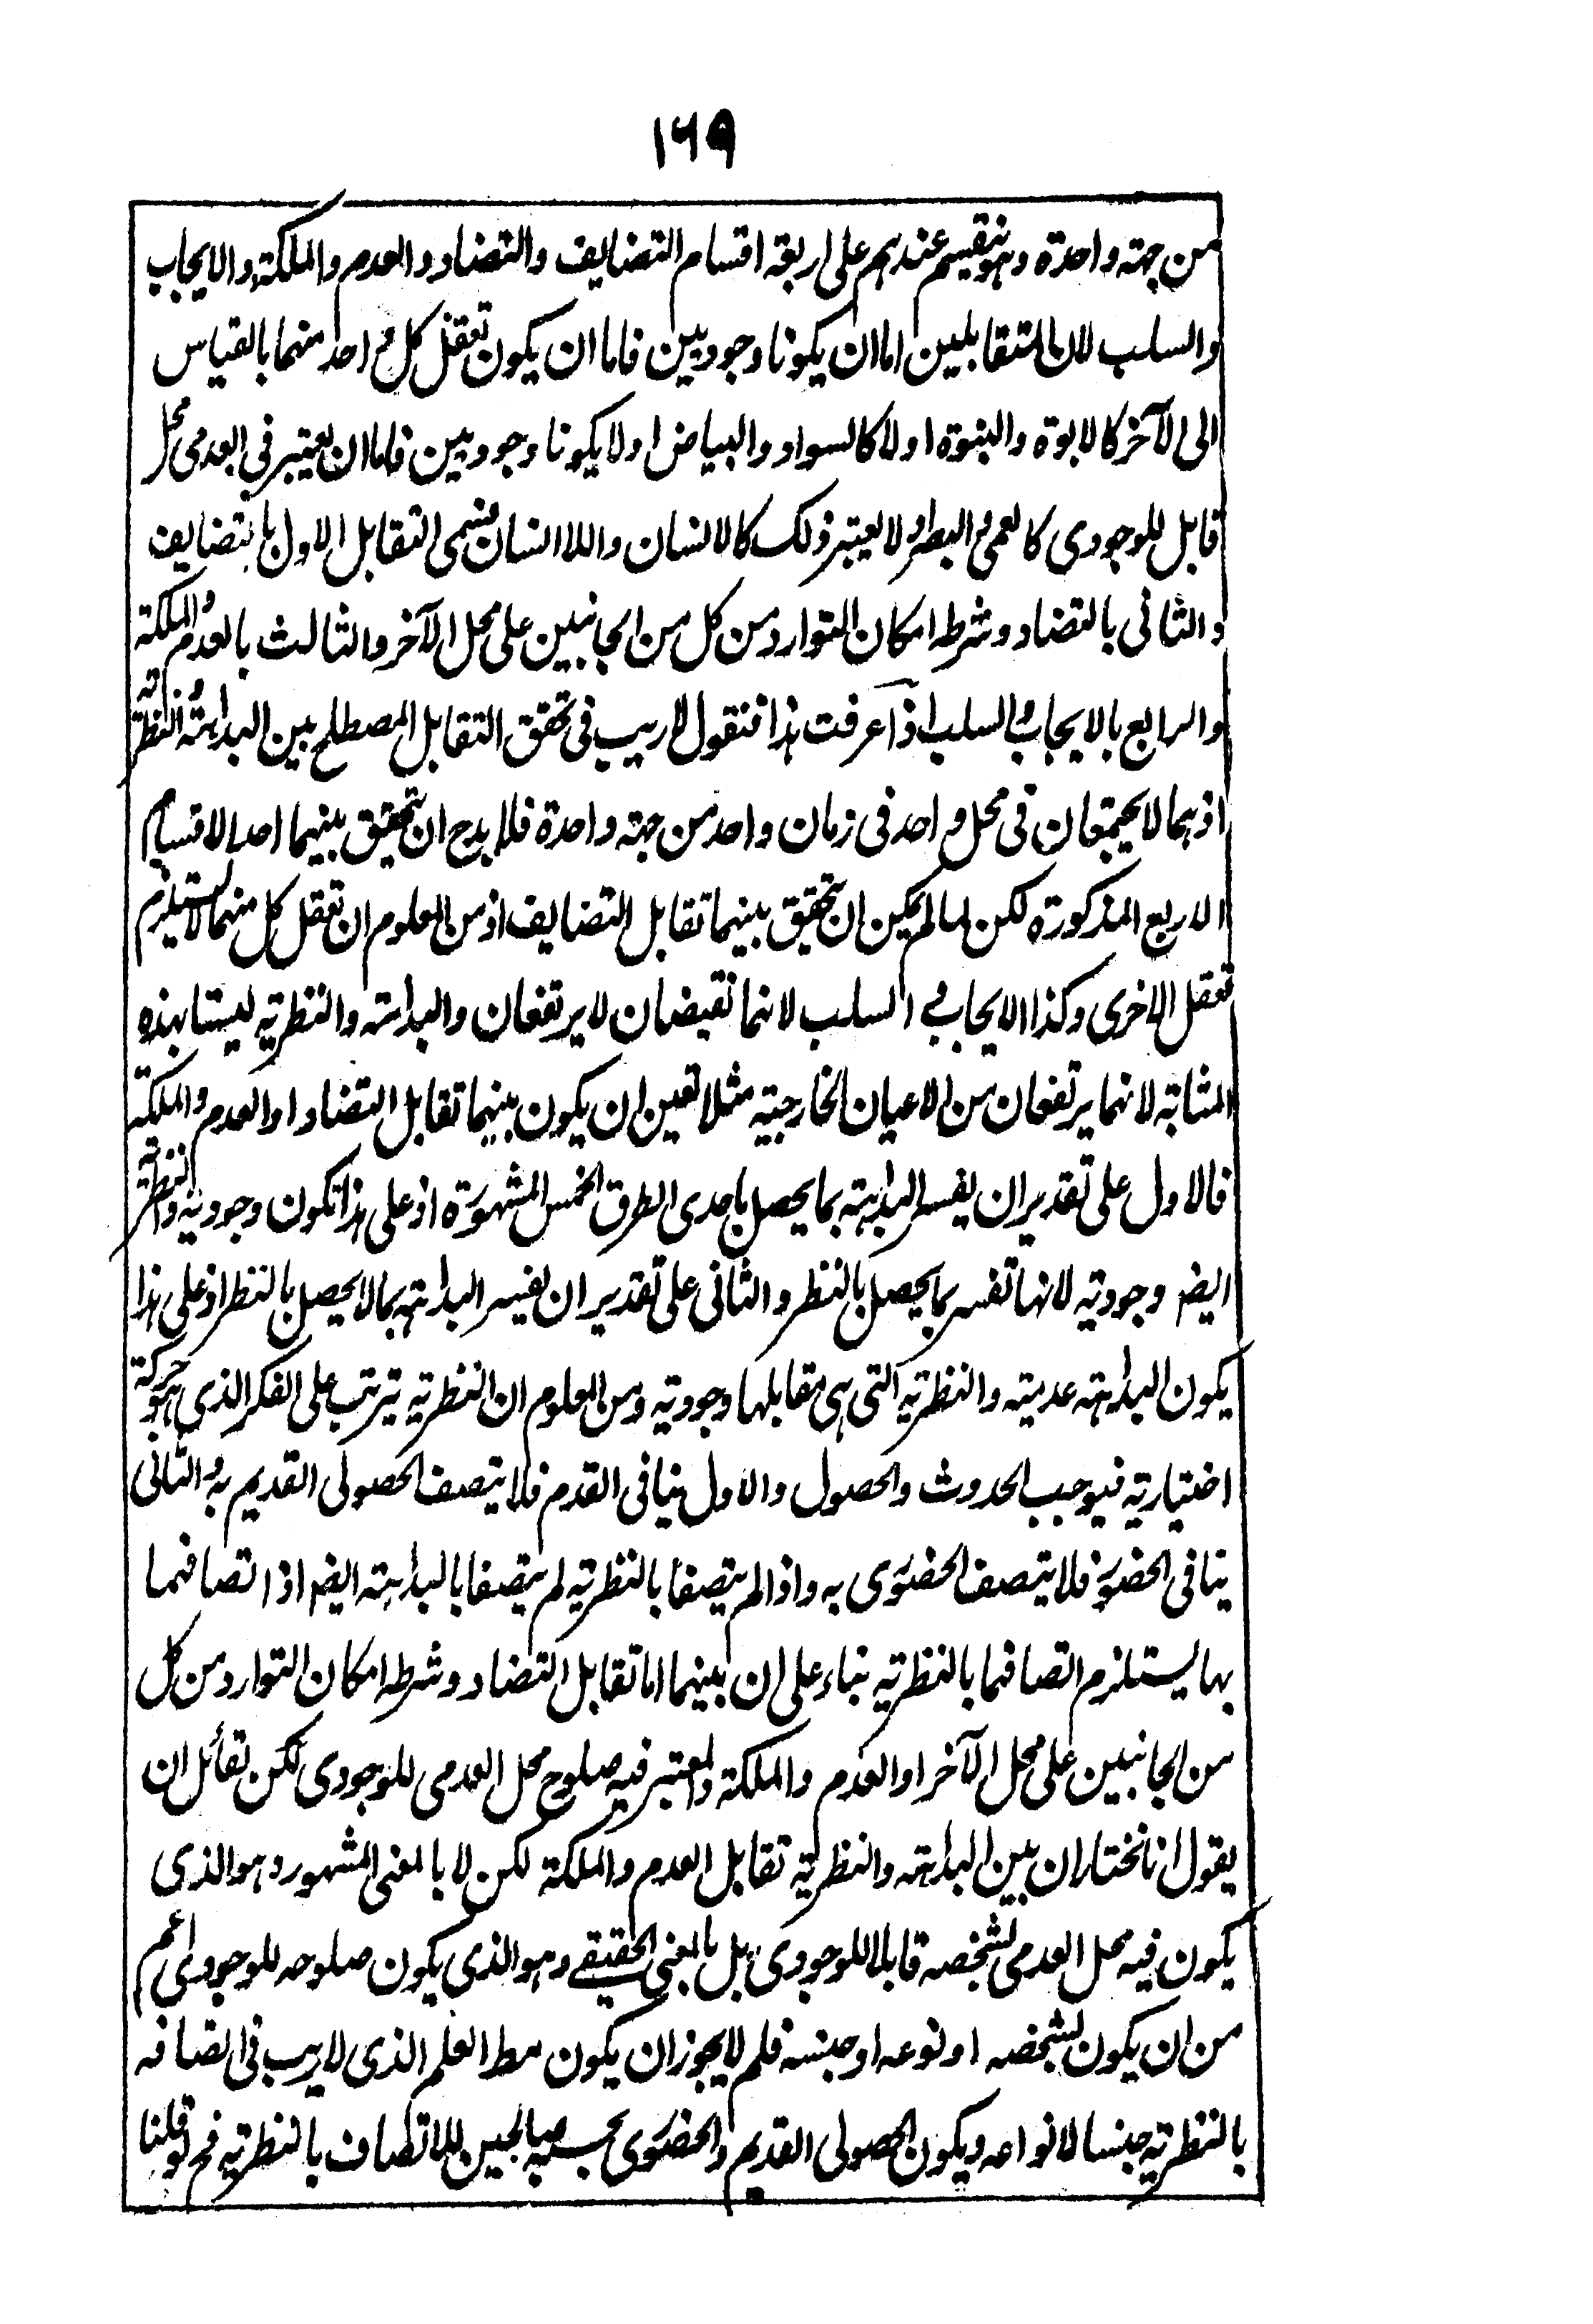 ١٦٩
من جهة واحدة وهو منقسم عندهم على اربعة اقسام التضايف والتضاد والعدم والملكة والايجاب
والسلب لان المتقابلين اما ان يكونا وجوديين فاما ان يكون تعقل كل واحد منهما بالقياس
الى الآخر كالابوة والبنوة اولا كالسواد والبياض او لا يكونا وجوديين فاما ان يعتبر في العدمى محل
قابل للوجودى كالعمى والبصر او لا يعتبر ذلك كالانسان واللاانسان فيسمى التقابل الاول بالتضايف
والثانى بالتضاد وشرطه امكان التوارد من كل من الجانبين على محل الآخر والثالث بالعدم والملكة
والرابع بالايجاب والسلب اذا عرفت هذا فنقول لاريب فى تحقق التقابل المصطلح بين البداهة والنظرية
اذ هما لا يجتمعان فى محل واحد فى زمان واحد من جهة واحدة فلا بد ح ان يتحقق بينهما احد الاقسام
الاربع المذكورة لكن لما لم يمكن ان يتحقق بينهما تقابل التضايف اذ من المعلوم ان تعقل كل منهما لا يستلزم
تعقل الاخرى وكذا الايجاب و السلب لانهما نقيضان لا يرتفعان والبداهة والنظرية ليستا بهذه
المثابة لانهما يرتفعان من الاعيان الخارجية مثلا تعين ان يكون بينهما تقابل التضاد او العدم والملكة
فالاول على تقدير ان يفسر البداهة بما يحصل باحدى الطرق الخمس المشهورة اذ على هذا تكون وجودية والنظرية
ايضا وجودية لانها تفسر بما يحصل بالنظر والثانى على تقدير ان يفسر البداهة بما لا يحصل بالنظر اذ على هذا
يكون البداهة عدمية والنظرية التى هى مقابلها وجودية ومن المعلوم ان النظرية يترتب على الفكر الذى هو حركة
اختيارية فيوجب الحدوث والحصول والاول ينافى القدم فلا يتصف الحصولى القديم به والثانى
ينافى الحضور فلا يتصف الحضورى به واذا لم يتصفا بالنظرية لم يتصفا بالبداهة ايضا اذ اتصافهما
بها يستلزم اتصافهما بالنظرية بناء على ان بينهما اما تقابل التضاد وشرطه امكان التوارد من كل
من الجانبين على محل الآخر او العدم والملكة والمعتبر فيه صلوح محل العدمى للوجودى لكن لقائل ان
يقول انا نختار ان بين البداهة والنظرية تقابل العدم والملكة لكن لا بالمعنى المشهور وهو الذى
يكون فيه محل العدمى لشخصه قابلا للوجودى بل بالمعنى الحقيقے وهو الذى يكون صلوحه للوجودى اعم
من ان يكون لشخصه او نوعه او جنسه فلم لا يجوز ان يكون مط العلم الذى لاريب فى اتصافه
بالنظرية جنسا لانواعه ويكون الحصولى القديم والحضورى بحسبه صالحين للاتصاف بالنظرية فح لو قلنا